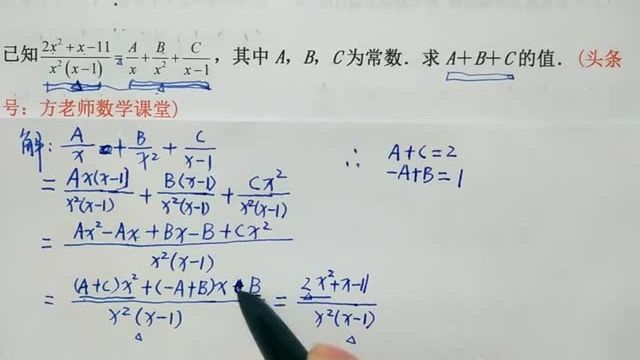 已知 (2x²+x-11)/(x²(x-1)) = A/x + B/x² + C/(x-1)，其中 A，B，C为常数．求 A+B+C的值．(头条
号：方老师数学课堂)
解: A/x + B/x² + C/(x-1)
= Ax(x-1)/(x²(x-1)) + B(x-1)/(x²(x-1)) + Cx²/(x²(x-1))
= (Ax²-Ax+Bx-B+Cx²)/(x²(x-1))
= ((A+C)x²+(-A+B)x-B)/(x²(x-1)) = (2x²+x-11)/(x²(x-1))
∴ A+C=2
-A+B=1